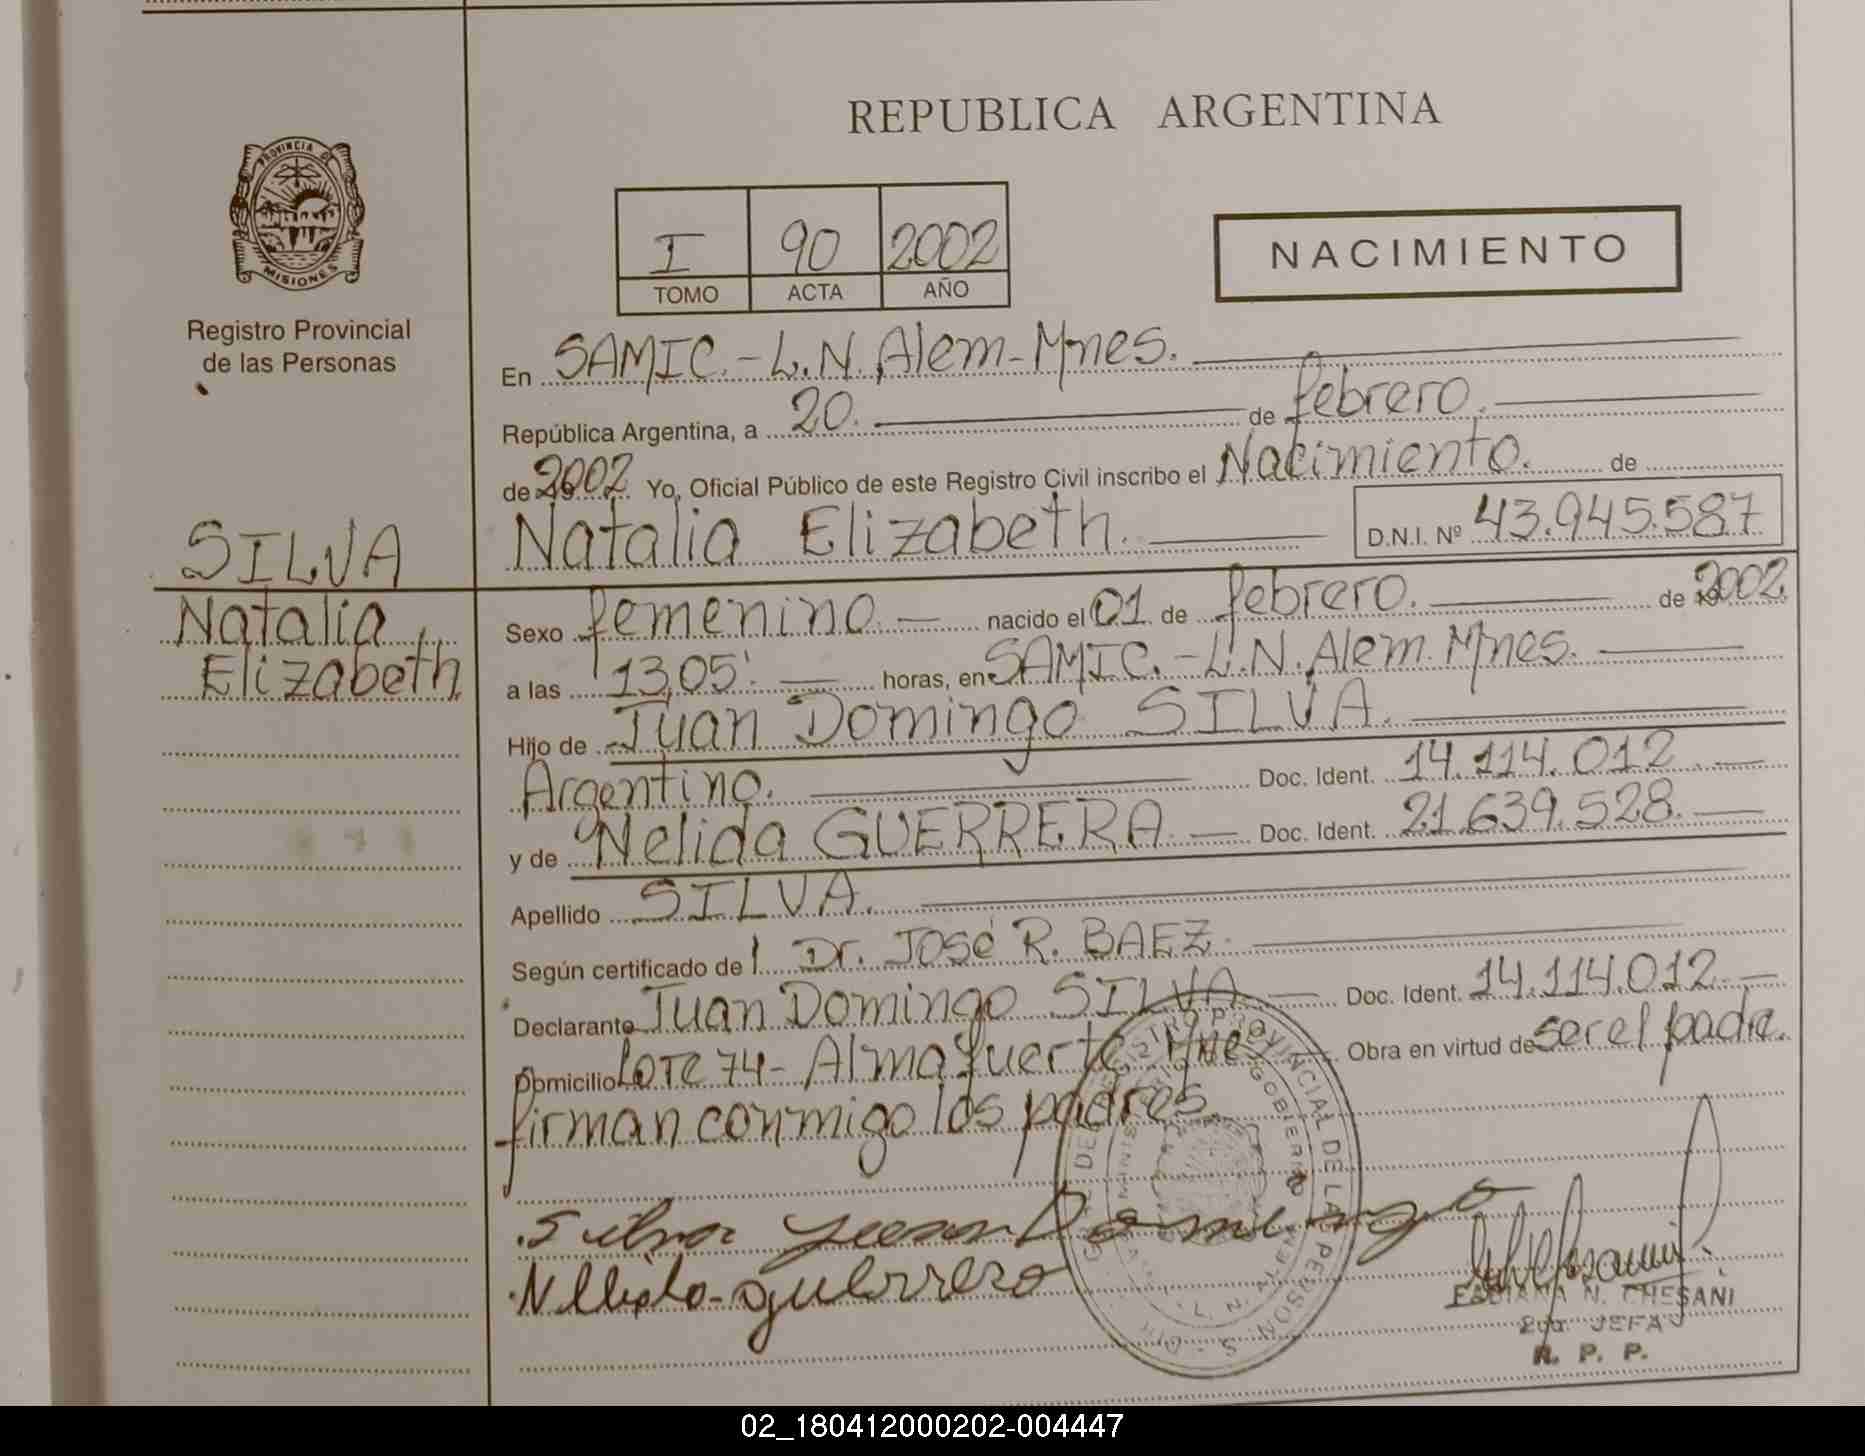 REPUBLICA ARGENTINA
PROVINCIA DE
MISIONES
Registro Provincial
de las Personas
I 90 2002
TOMO ACTA AÑO
NACIMIENTO
En SAMIC.-L.N.Alem-Mnes.
República Argentina, a 20. de febrero.
de 2002 Yo, Oficial Público de este Registro Civil inscribo el Nacimiento. de
Natalia Elizabeth. D.N.I. Nº 43.945.587
SILVA
Natalia
Elizabeth
Sexo femenino nacido el 01 de febrero. de 2002
a las 13,05' horas, en SAMIC.-L.N.Alem.Mnes.
Hijo de Juan Domingo SILVA.
Argentino. Doc. Ident. 14.114.012
y de Nelida GUERRERA Doc. Ident. 21.639.528.
Apellido SILVA.
Según certificado de l Dr. José R. BAEZ.
Declarante Juan Domingo SILVA Doc. Ident. 14.114.012.
Domicilio Lote 74- Almafuerte Mnes Obra en virtud de ser el padre.
firman conmigo los padres
Silva Juan Domingo
Nelida guerrera
FABIANA N. CHESANI
2da. JEFA
R. P. P.
02_180412000202-004447